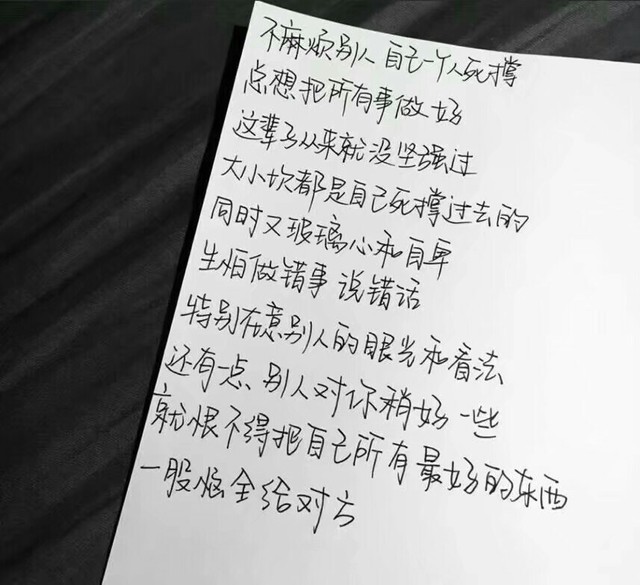 不麻烦别人 自己一个人死撑
总想把所有事做好
这辈子从来就没坚强过
大小坎都是自己死撑过去的
同时又玻璃心和自卑
生怕做错事 说错话
特别在意别人的眼光和看法
还有一点 别人对你稍好一些
就恨不得把自己所有最好的东西
一股恼全给对方